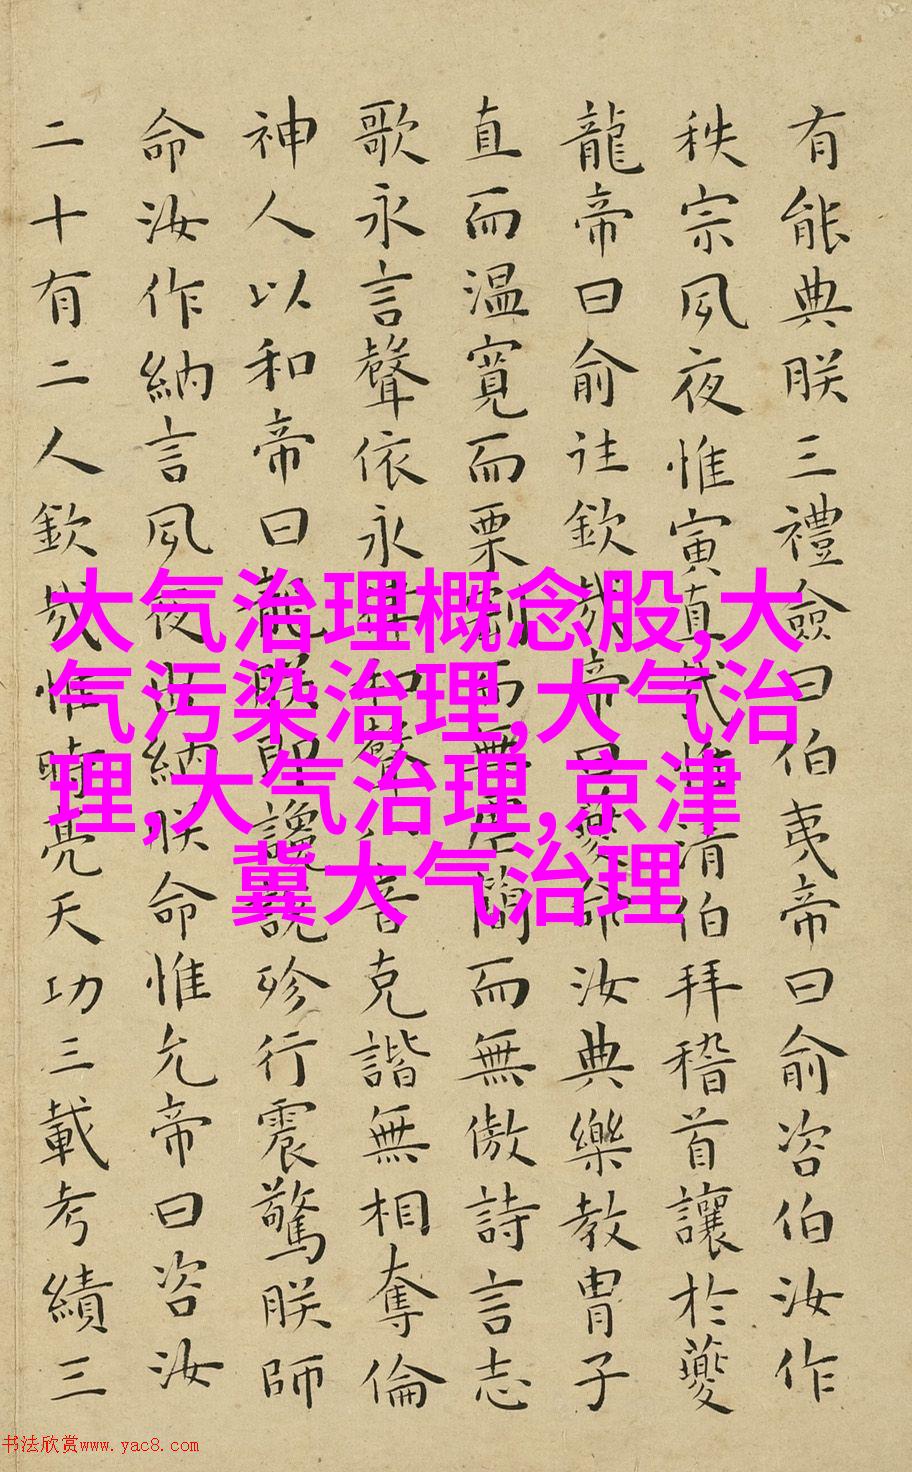 有能典朕三禮僉曰伯夷帝曰俞咨伯汝作
秩宗夙夜惟寅直哉惟清伯拜稽首讓於夔
龍帝曰俞往欽哉帝曰夔命汝典樂教胄子
直而温寬而栗剛而無虐簡而無傲詩言志
歌永言聲依永律和聲八音克諧無相奪倫
神人以和帝曰龍朕堲讒說殄行震驚朕師
命汝作納言夙夜出納朕命惟允帝曰咨汝
二十有二人欽哉惟時亮天功三載考績三
大气治理概念股,大
气污染治理,大气治
理,大气治理,京津
冀大气治理
书法欣赏www.yac8.com